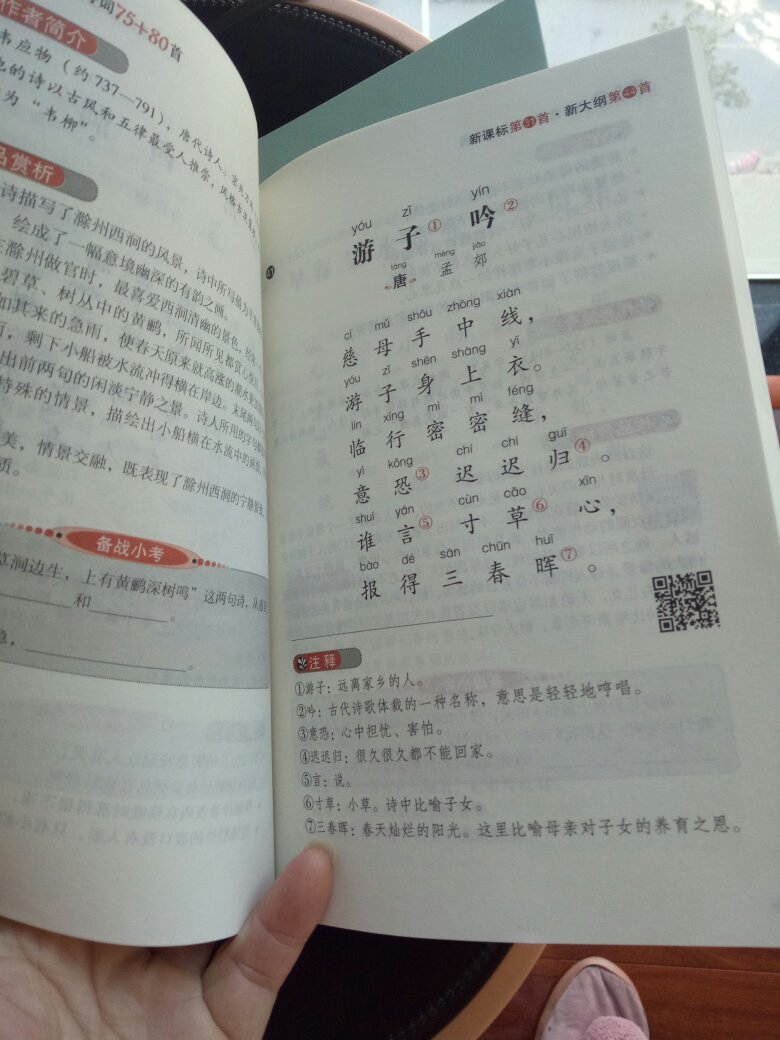 词75+80首
作者简介
韦应物（约737—791），唐代诗人。
他的诗以古风和五律最受人推崇，风格
为“韦柳”。
品赏析
诗描写了滁州西涧的风景，诗中所写虽为平常
绘成了一幅意境幽深的有韵之画。
在滁州做官时，最喜爱西涧清幽的景色，
碧草、树丛中的黄鹂，所闻所见都赏心
如其来的急雨，使春天原来就高涨的潮水
剩下小船被水流冲得横在岸边。末尾两句
出前两句的闲淡宁静之景。诗人所用的字句
特殊的情景，描绘出小船横在水流中的画面
美，情景交融，既表现了滁州西涧的宁静
质。
备战小考
草涧边生，上有黄鹂深树鸣”这两句诗，从
和 。
急， 。
新课标第31首·新大纲第44首
yóu zǐ yín
游子①吟②
táng mèng jiāo
唐 孟郊
cí mǔ shǒu zhōng xiàn
慈母手中线，
yóu zǐ shēn shàng yī
游子身上衣。
lín xíng mì mì féng
临行密密缝，
yì kǒng chí chí guī
意恐③迟迟归④。
shuí yán cùn cǎo xīn
谁言⑤寸草⑥心，
bào dé sān chūn huī
报得三春晖⑦。
注释
①游子：远离家乡的人。
②吟：古代诗歌体裁的一种名称，意思是轻轻地哼唱。
③意恐：心中担忧、害怕。
④迟迟归：很久很久都不能回家。
⑤言：说。
⑥寸草：小草。诗中比喻子女。
⑦三春晖：春天灿烂的阳光。这里比喻母亲对子女的养育之恩。